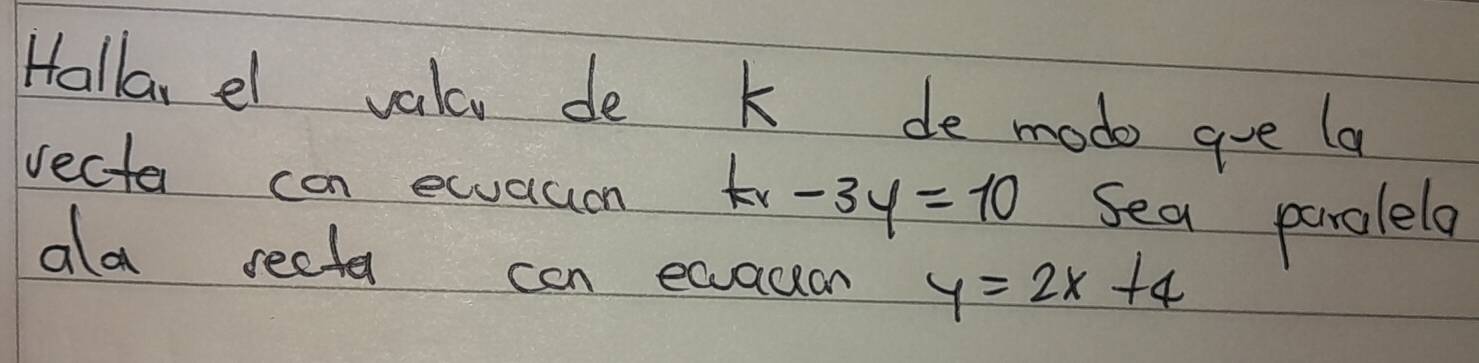 Hallar el valor de k de modo que la
recta con ecuacion kx - 3y = 10 sea paralela
ala recta con ecuacion y = 2x + 4